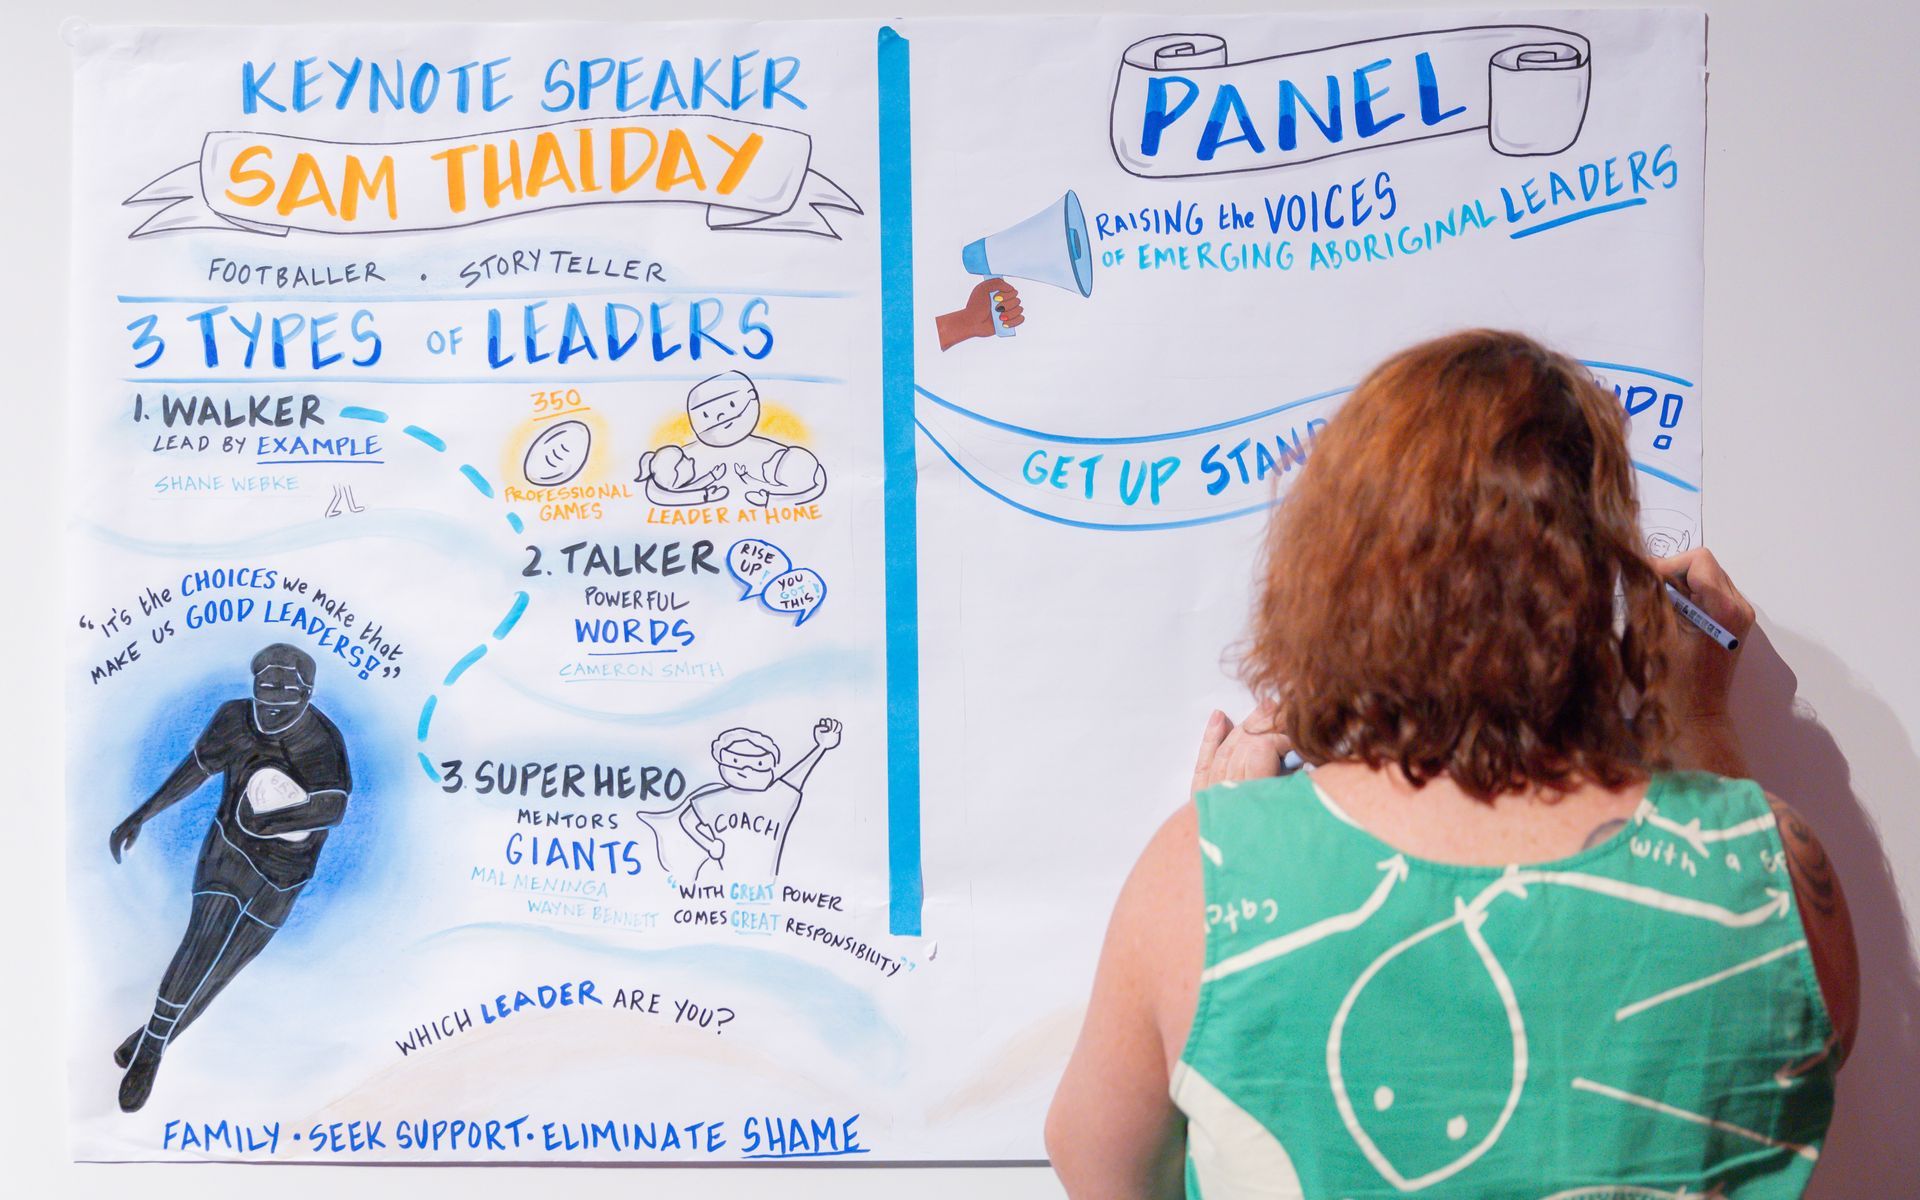 KEYNOTE SPEAKER
SAM THAIDAY
FOOTBALLER . STORYTELLER
3 TYPES OF LEADERS
1. WALKER
LEAD BY EXAMPLE
SHANE WEBKE
350
PROFESSIONAL
GAMES
LEADER AT HOME
2. TALKER
POWERFUL
WORDS
CAMERON SMITH
RISE
UP!
YOU
GOT
THIS!
"IT'S the CHOICES we make that
MAKE US GOOD LEADERS!"
3. SUPERHERO
MENTORS
GIANTS
MAL MENINGA
WAYNE BENNETT
COACH
"WITH GREAT POWER
COMES GREAT RESPONSIBILITY"
WHICH LEADER ARE YOU?
FAMILY · SEEK SUPPORT · ELIMINATE SHAME
PANEL
RAISING the VOICES
OF EMERGING ABORIGINAL LEADERS
GET UP STAND UP!
with a
catch